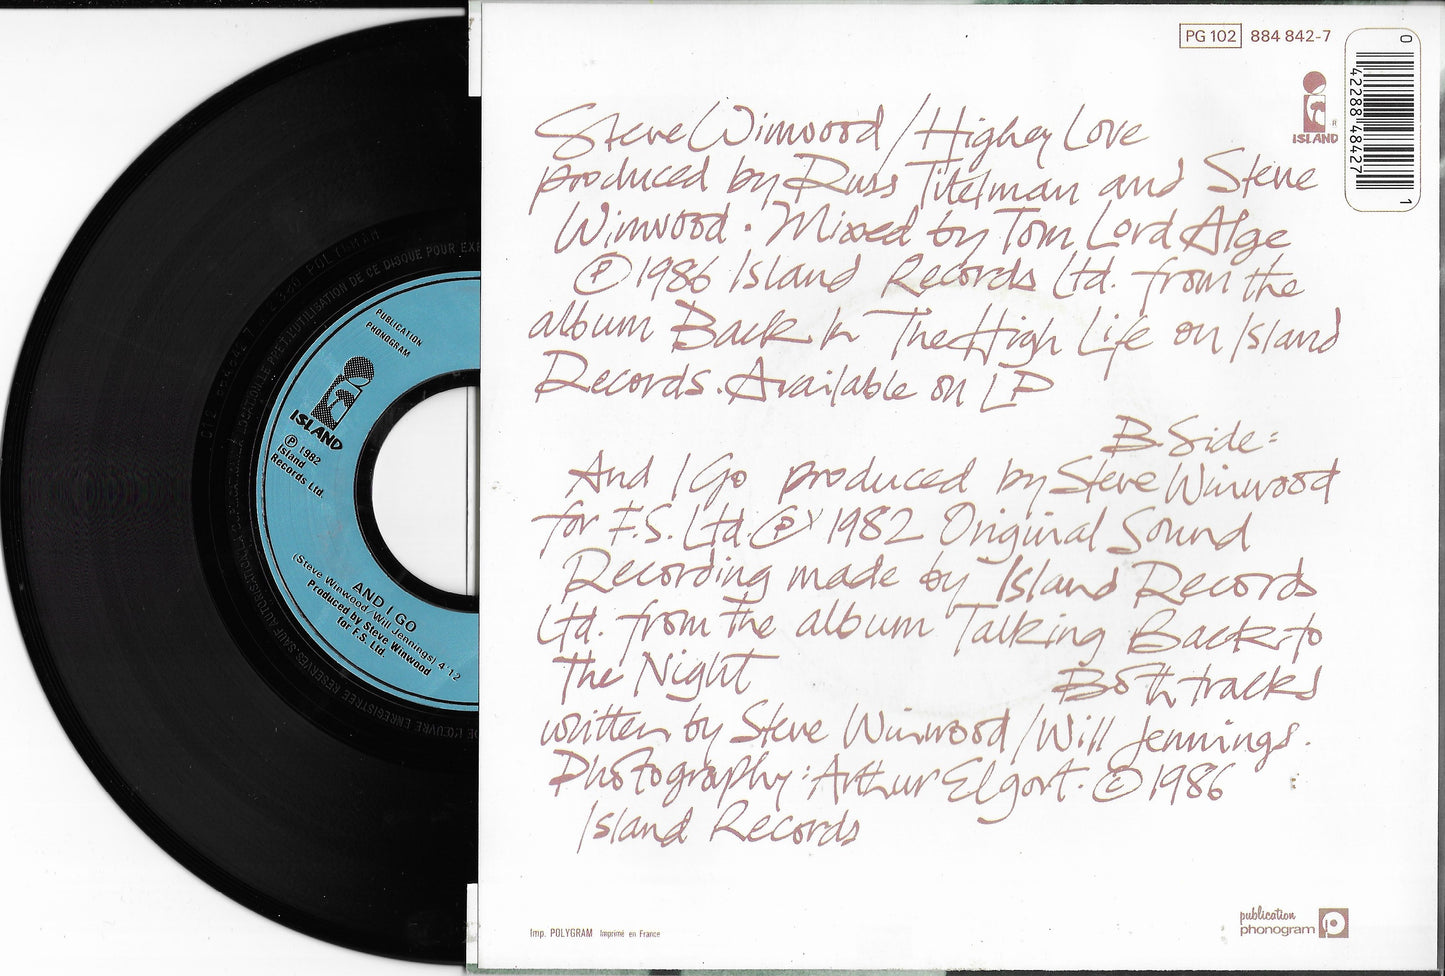 PG 102 884 842-7
0 42288 48427 1
ISLAND
Steve Winwood / Higher Love
produced by Russ Titelman and Steve
Winwood . Mixed by Tom Lord Alge
℗ 1986 Island Records Ltd. from the
album Back In The High Life on Island
Records. Available on LP
B-Side:
And I Go produced by Steve Winwood
for F.S. Ltd. ℗ 1982 Original Sound
Recording made by Island Records
Ltd. from the album Talking Back to
The Night
Both tracks
written by Steve Winwood / Will Jennings.
Photography: Arthur Elgort. © 1986
Island Records
Imp. POLYGRAM Imprimé en France
publication
phonogram
PUBLICATION
PHONOGRAM
ISLAND
℗ 1982
Island
Records Ltd.
AND I GO
(Steve Winwood/Will Jennings) 4'12
Produced by Steve Winwood
for F.S. Ltd.
POLYGRAM
L'UTILISATION DE CE DISQUE POUR EX